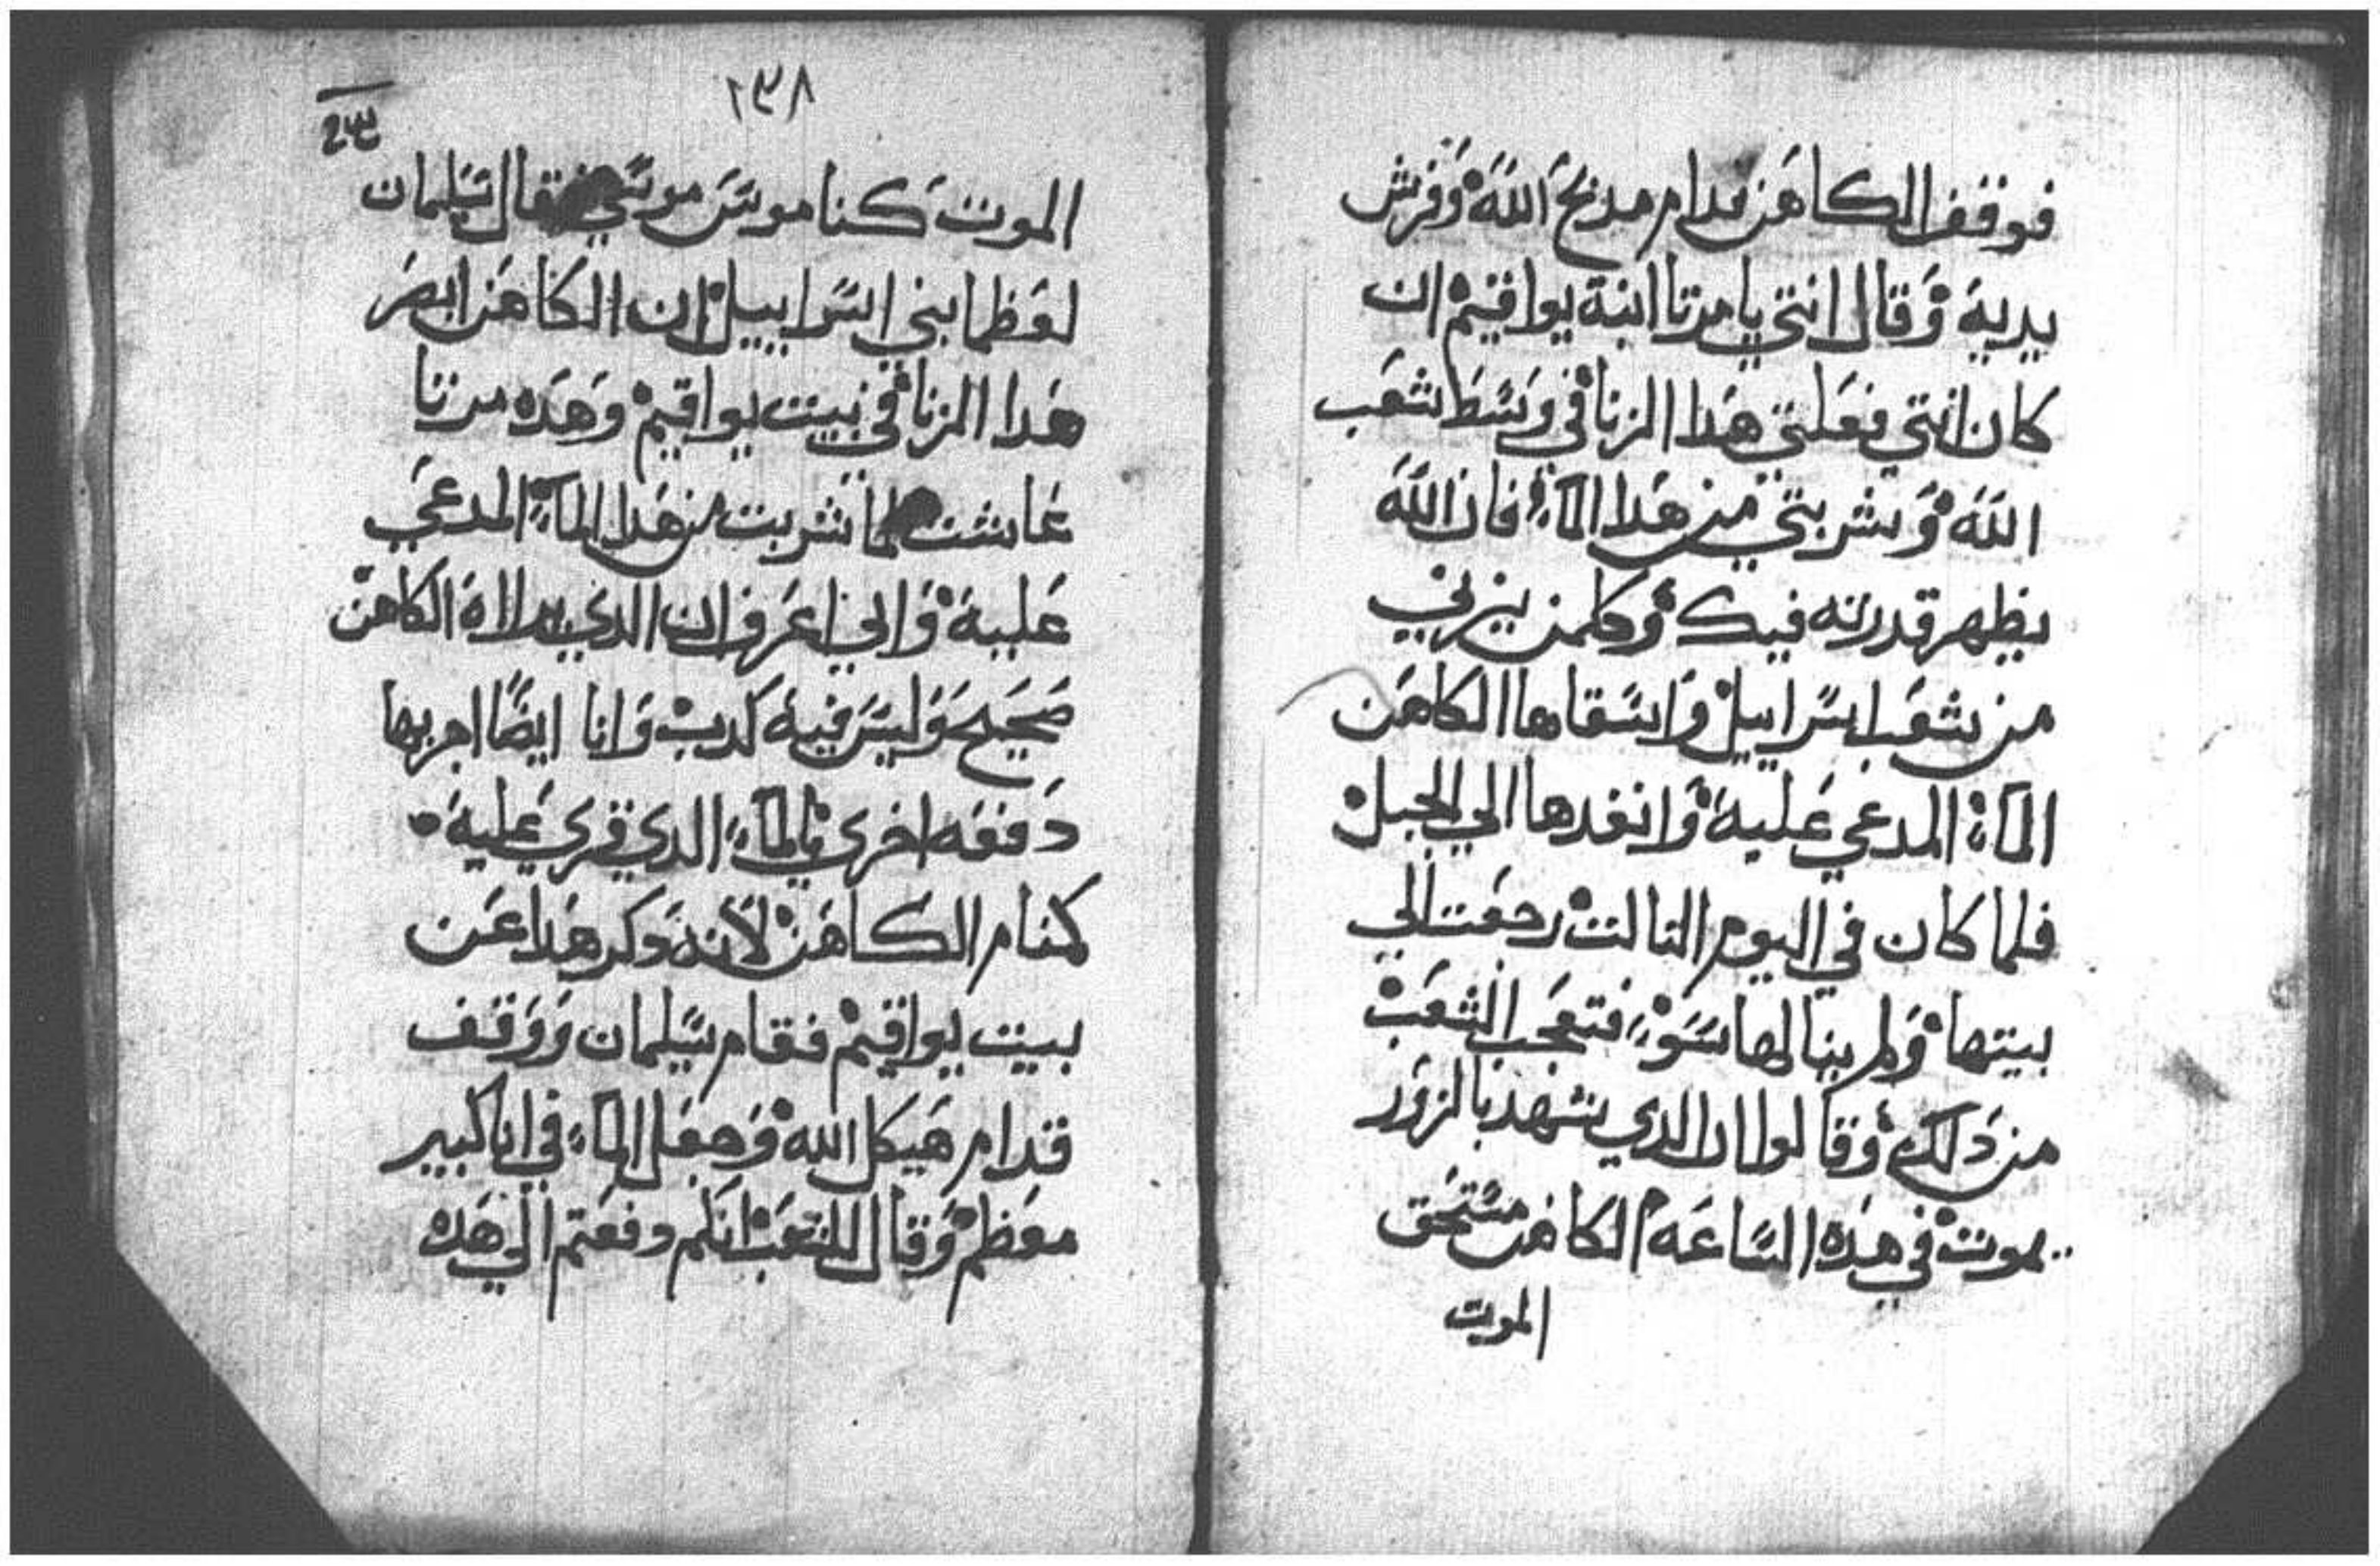 فوقف الكاهن قدام مدبح الله وفرش
يديه وقال انتي يا مرتا ابنة يواقيم ان
كان انتي فعلتي هدا الزنا في وسط شعب
الله وشربتي من هدا الماء فان الله
يظهر قدرته فيك وكلمن يزني
من شعب اسراييل واسقاها الكاهن
الماء المدعي عليه وانفدها الي الجبل
فلما كان في اليوم التالت رجعت الي
بيتها ولم ينالها سوء فتعجب الشعب
من دلك وقالوا ان الدي يشهد بالزور
يموت في هده الساعه الكاهن مستحق
الموت
٢٣٨
الموت كناموس موسي فقال سليمان
لعظما بني اسراييل ان الكاهن ابصر
هدا الزنا في بيت يواقيم وهده مرتا
عاشت لما شربت من هدا الماء المدعي
عليه واني اعرف ان الدي الكاهن
صحيح وليس فيه كدب وانا ايضا اجربها
دفعه اخري بالماء الدي قري عليه
كنام الكاهن لانه دكر هدا عن
بيت يواقيم فقام سليمان ووقف
قدام هيكل الله وجعل الماء في انا كبير
معظم وقال للشعب انكم دفعتم الي هده